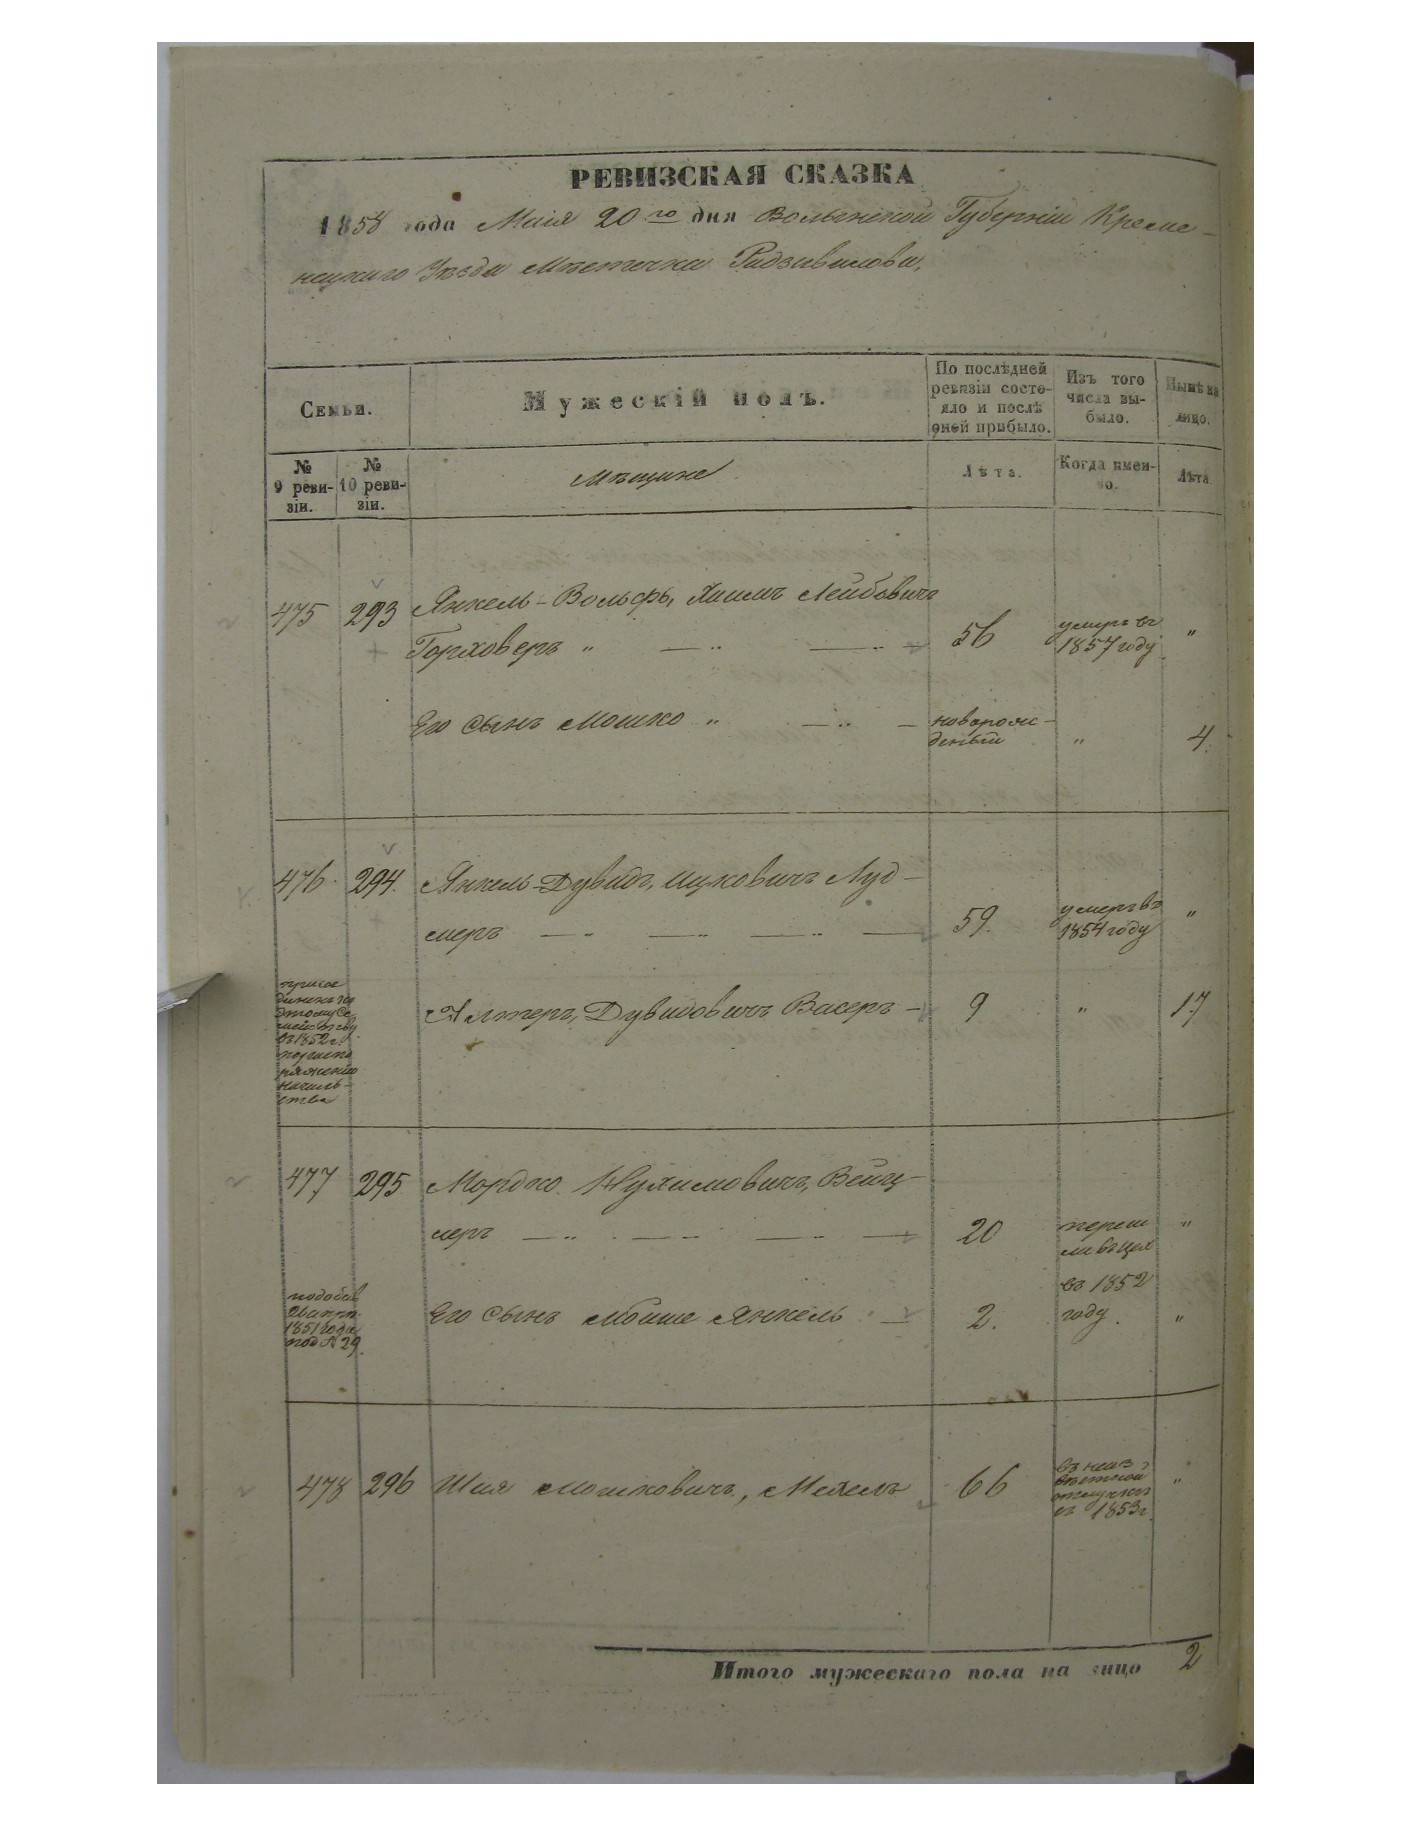 РЕВИЗСКАЯ СКАЗКА
1858 года Маія 20го дня Волынской Губерніи Креме-
нецкаго Уѣзда Мѣстечка Радзивилова,
Семьи.
Мужескій полъ.
По послѣдней
ревизіи состо-
яло и послѣ
оней прибыло.
Изъ того
числа вы-
было.
Нынѣ на
лицо.
№
9 реви-
зіи.
№
10 реви-
зіи.
Мѣщане
Лѣта.
Когда имен-
но.
Лѣта.
475 293 Янкель-Вольфъ, Хаимъ Лейбовичъ
Горховеръ „ — „ — „ — 56 умеръ въ
1857 году „
Его сынъ Мошко „ — „ — новорож-
деный „ 4.
476. 294. Янкель-Дувидъ, Ицковичъ Луд-
меръ — „ — „ — „ — 59. умеръ въ
1854 году „
присое
диненъ къ
этому Се
мейству
въ 1852 г.
по распо
ряженію
началь-
ства
Алтеръ, Дувидовичъ Васеръ — 9 „ 17
477 295 Мордко Нухимовичъ, Вейц-
меръ — „ — „ — „ — 20 переш
ли въ цех „
въ 1852
году.
1851 года
под № 29.
Его сынъ Мойше Янкель — 2. „
478 296 Шая Мошковичъ, Мехелъ 66 въ неиз-
вѣстной
отлучкѣ
съ 1853 г. „
Итого мужескаго пола на лицо 2